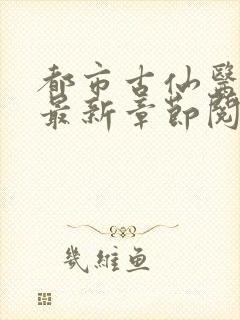 都市古仙醫
最新章節閱
幾維魚